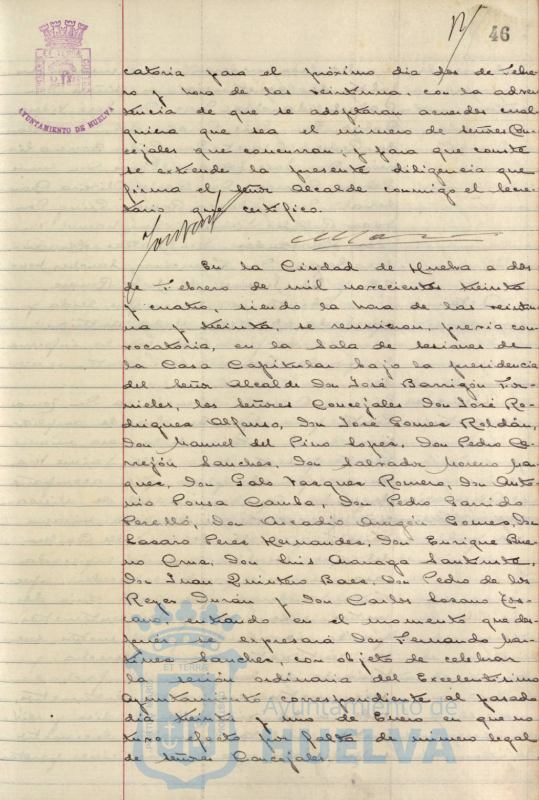 46
AYUNTAMIENTO DE HUELVA
catoria para el próximo dia dos de Febre-
ro y hora de las veintiuna, con la adver-
tencia de que se adoptaran acuerdos cual-
quiera que sea el numero de señores Con-
cejales que concurran; y para que conste
se extiende la presente diligencia que
firma el señor Alcalde conmigo el Secre-
tario que certifico.
En la Ciudad de Huelva a dos
de Febrero de mil novecientos treinta
y cuatro, siendo la hora de las veintiu-
na y treinta, se reunieron, previa con-
vocatoria, en la Sala de sesiones de
la Casa Capitular bajo la presidencia
del Señor Alcalde Don José Barrigón For-
nieles, los señores Concejales Don José Ro-
driguez Alfonso, Don José Gomez Roldán,
Don Manuel del Pino Lopez, Don Pedro Ce-
rrejón Sanchez, Don Salvador Moreno Mar-
quez, Don Galo Vazquez Romero, Don Anto-
nio Pousa Camba, Don Pedro Garrido
Perelló, Don Arcadio Aragón Gomez, Don
Lazaro Perez Hernandez, Don Enrique Bue-
no Cruz, Don Luis
Don Juan Quintero Baez, Don Pedro de los
Reyes Durán y Don Carlos Lozano
entrando en el momento que des-
pués se expresará Don Fernando Mar-
tinez Sanchez, con objeto de celebrar
la sesión ordinaria del Excelentisimo
Ayuntamiento correspondiente al pasado
dia treinta y uno de Enero en que no
tuvo efecto por falta de número legal
de señores Concejales.
Ayuntamiento de
HUELVA